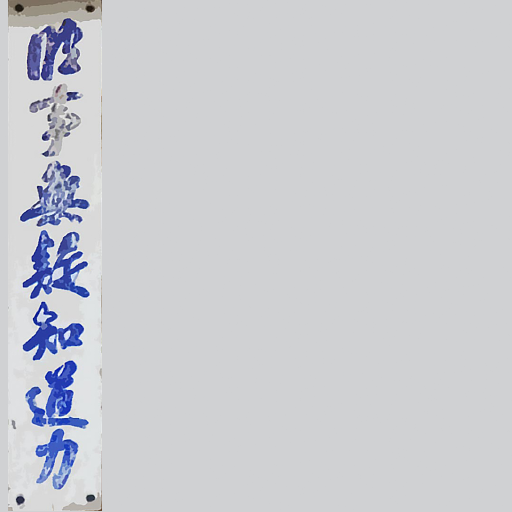 勝事無疑知道力